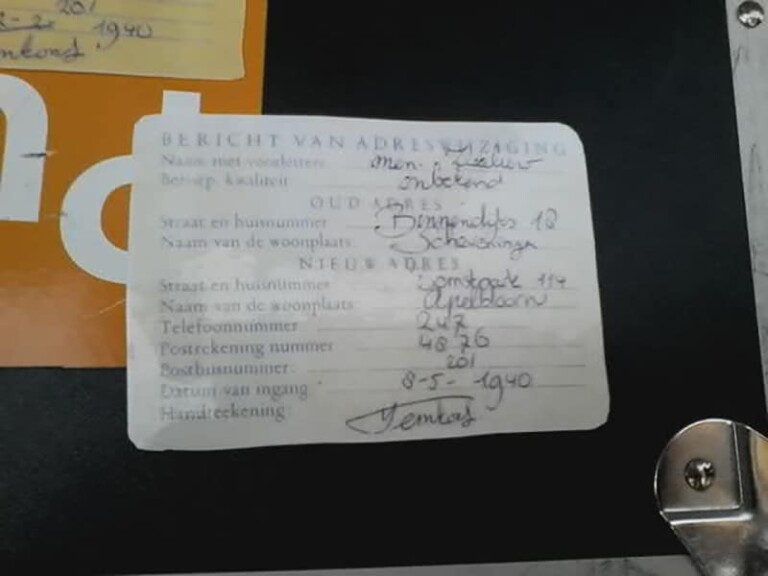 201
1940
BERICHT VAN ADRESWIJZIGING
Naam met voorletters men.
Beroep, kwaliteit onbekend
OUD ADRES
Straat en huisnummer Binnendijks 18
Naam van de woonplaats Scheveningen
NIEUW ADRES
Straat en huisnummer 114
Naam van de woonplaats Apeldoorn
Telefoonnummer 247
Postrekening nummer 4876
Postbusnummer 201
Datum van ingang 8-5-1940
Handteekening